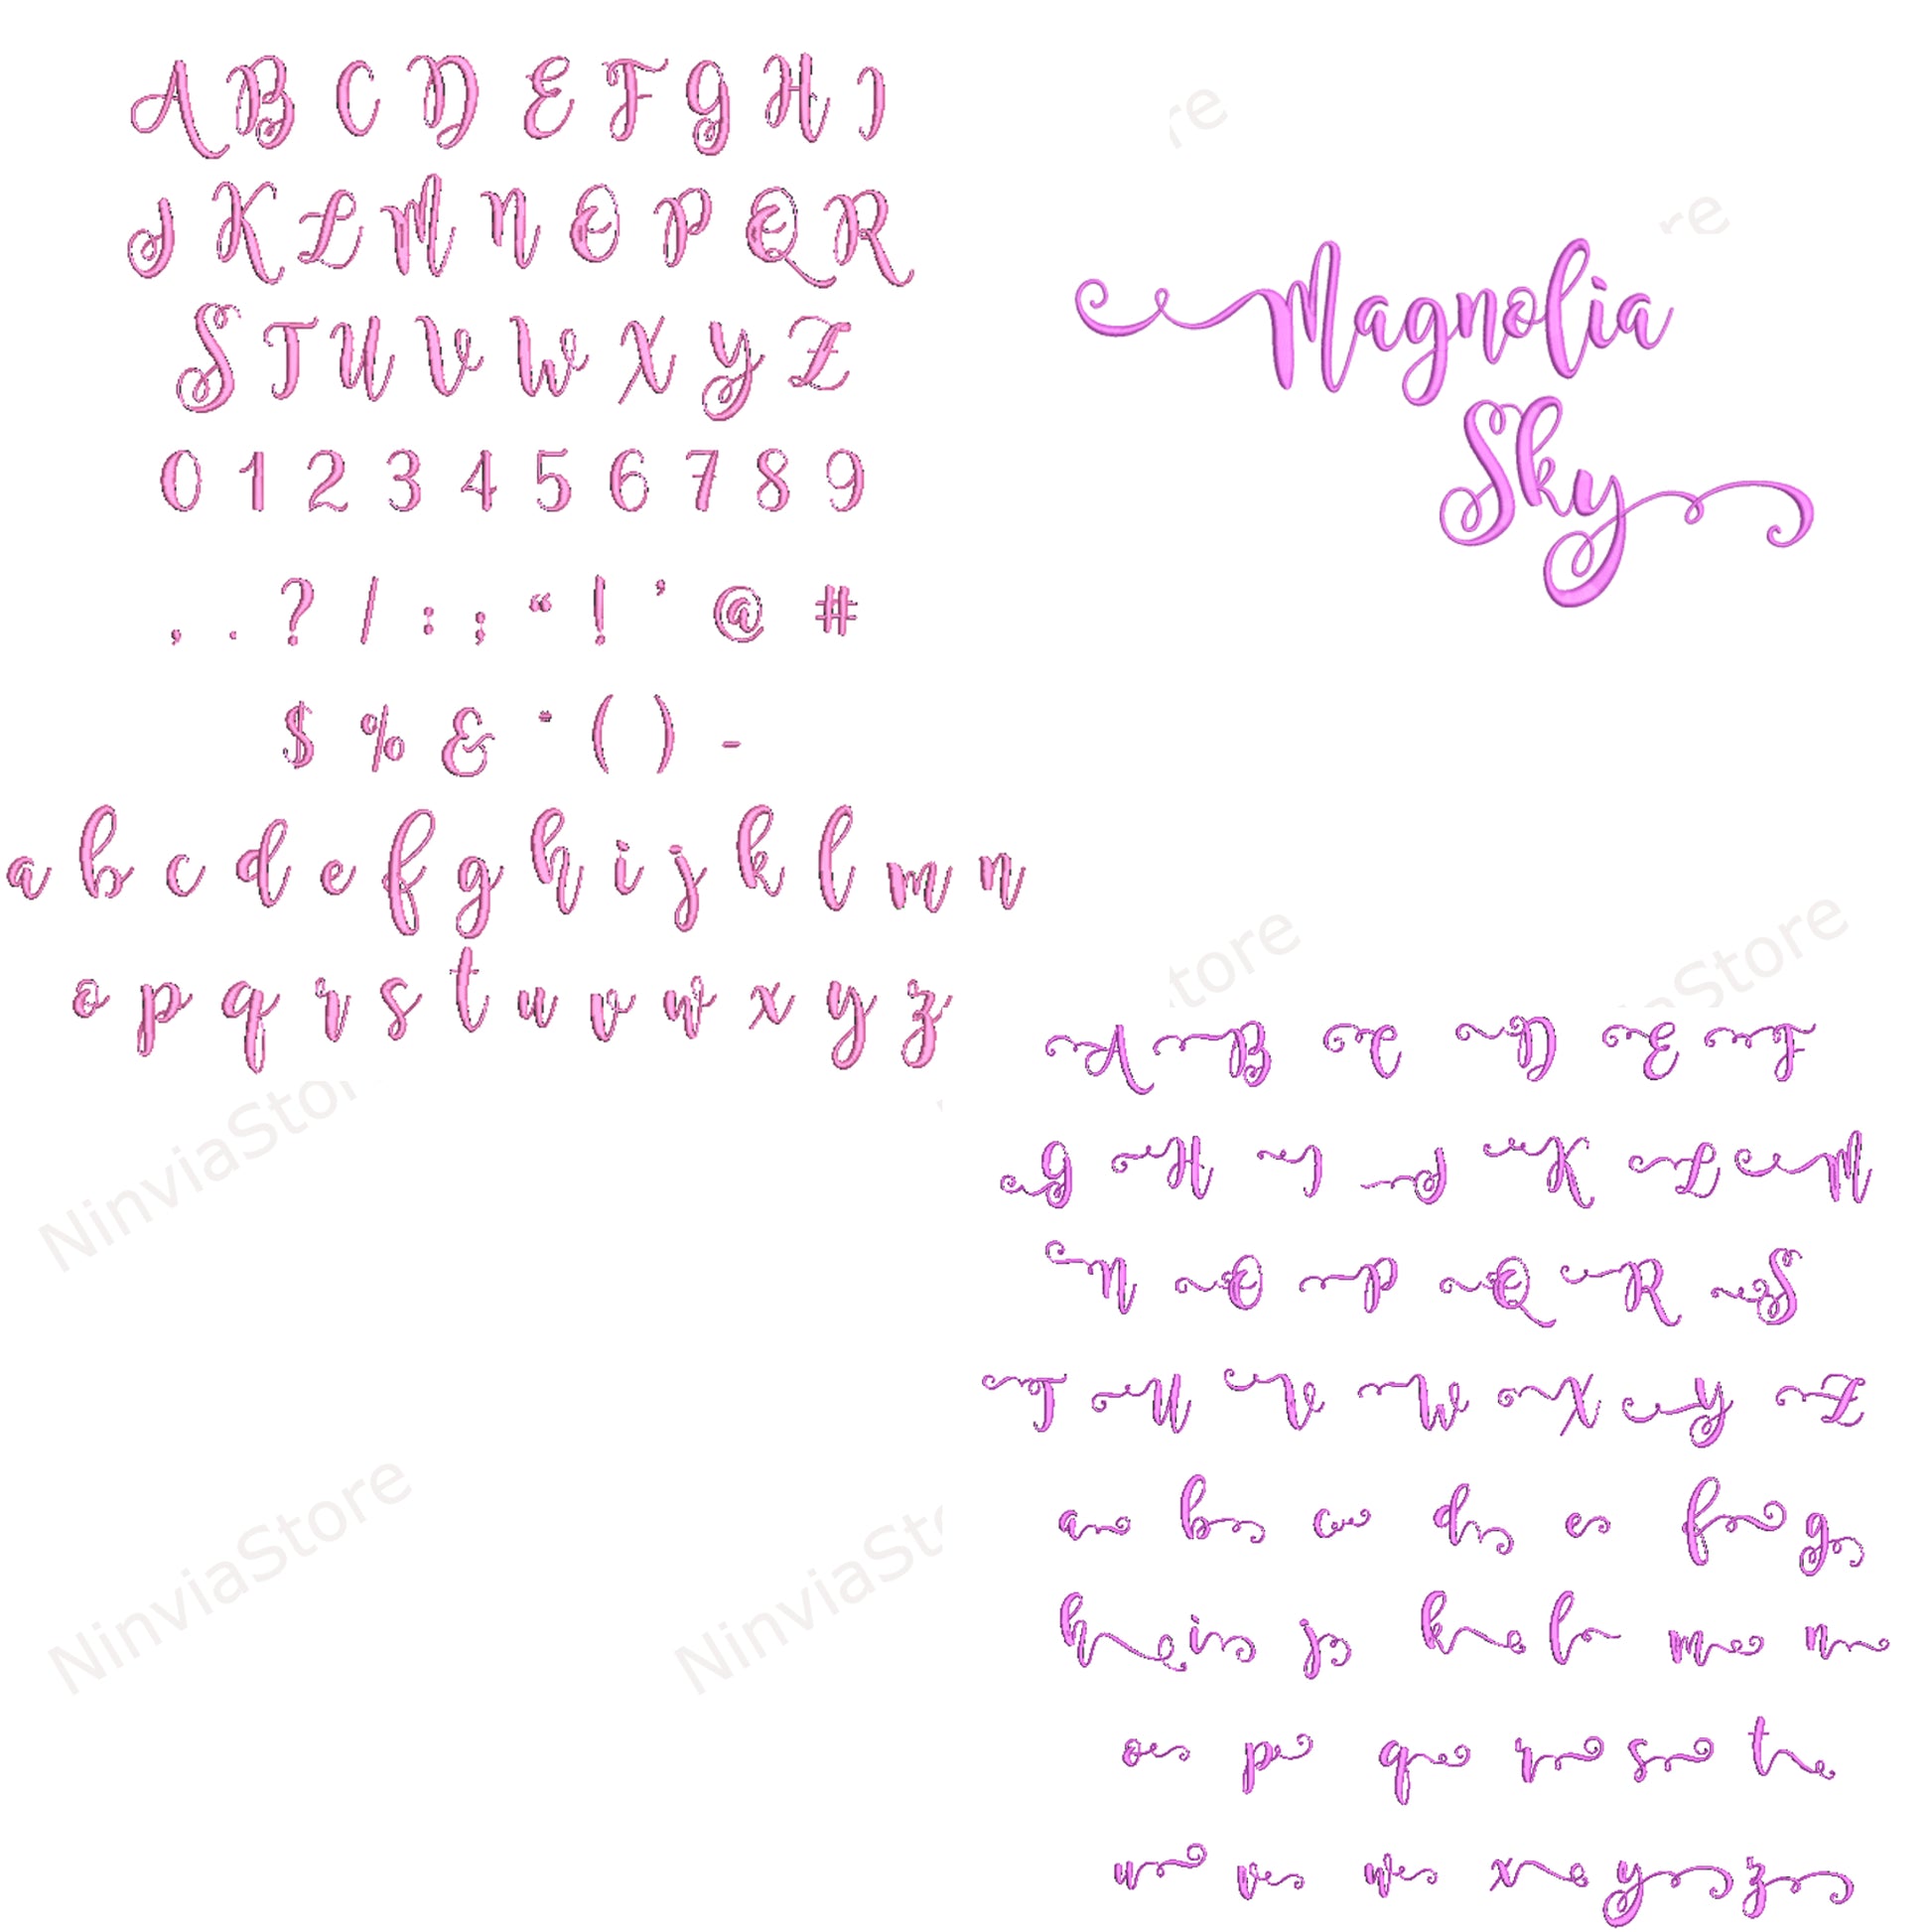 A B C D E F G H I
J K L M N O P Q R
S T U V W X Y Z
0 1 2 3 4 5 6 7 8 9
, . ? / : ; “ ! ’ @ #
$ % & * ( ) -
a b c d e f g h i j k l m n
o p q r s t u v w x y z
Magnolia
Sky
A B C D E F
G H I J K L M
N O P Q R S
T U V W X Y Z
a b c d e f g
h i j k l m n
o p q r s t
u v w x y z
re
re
tore
viaStore
NinviaStore
NinviaStore
NinviaSto